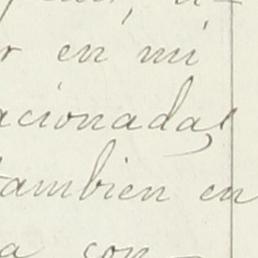 en mi
acionadas
tambien en
a con-